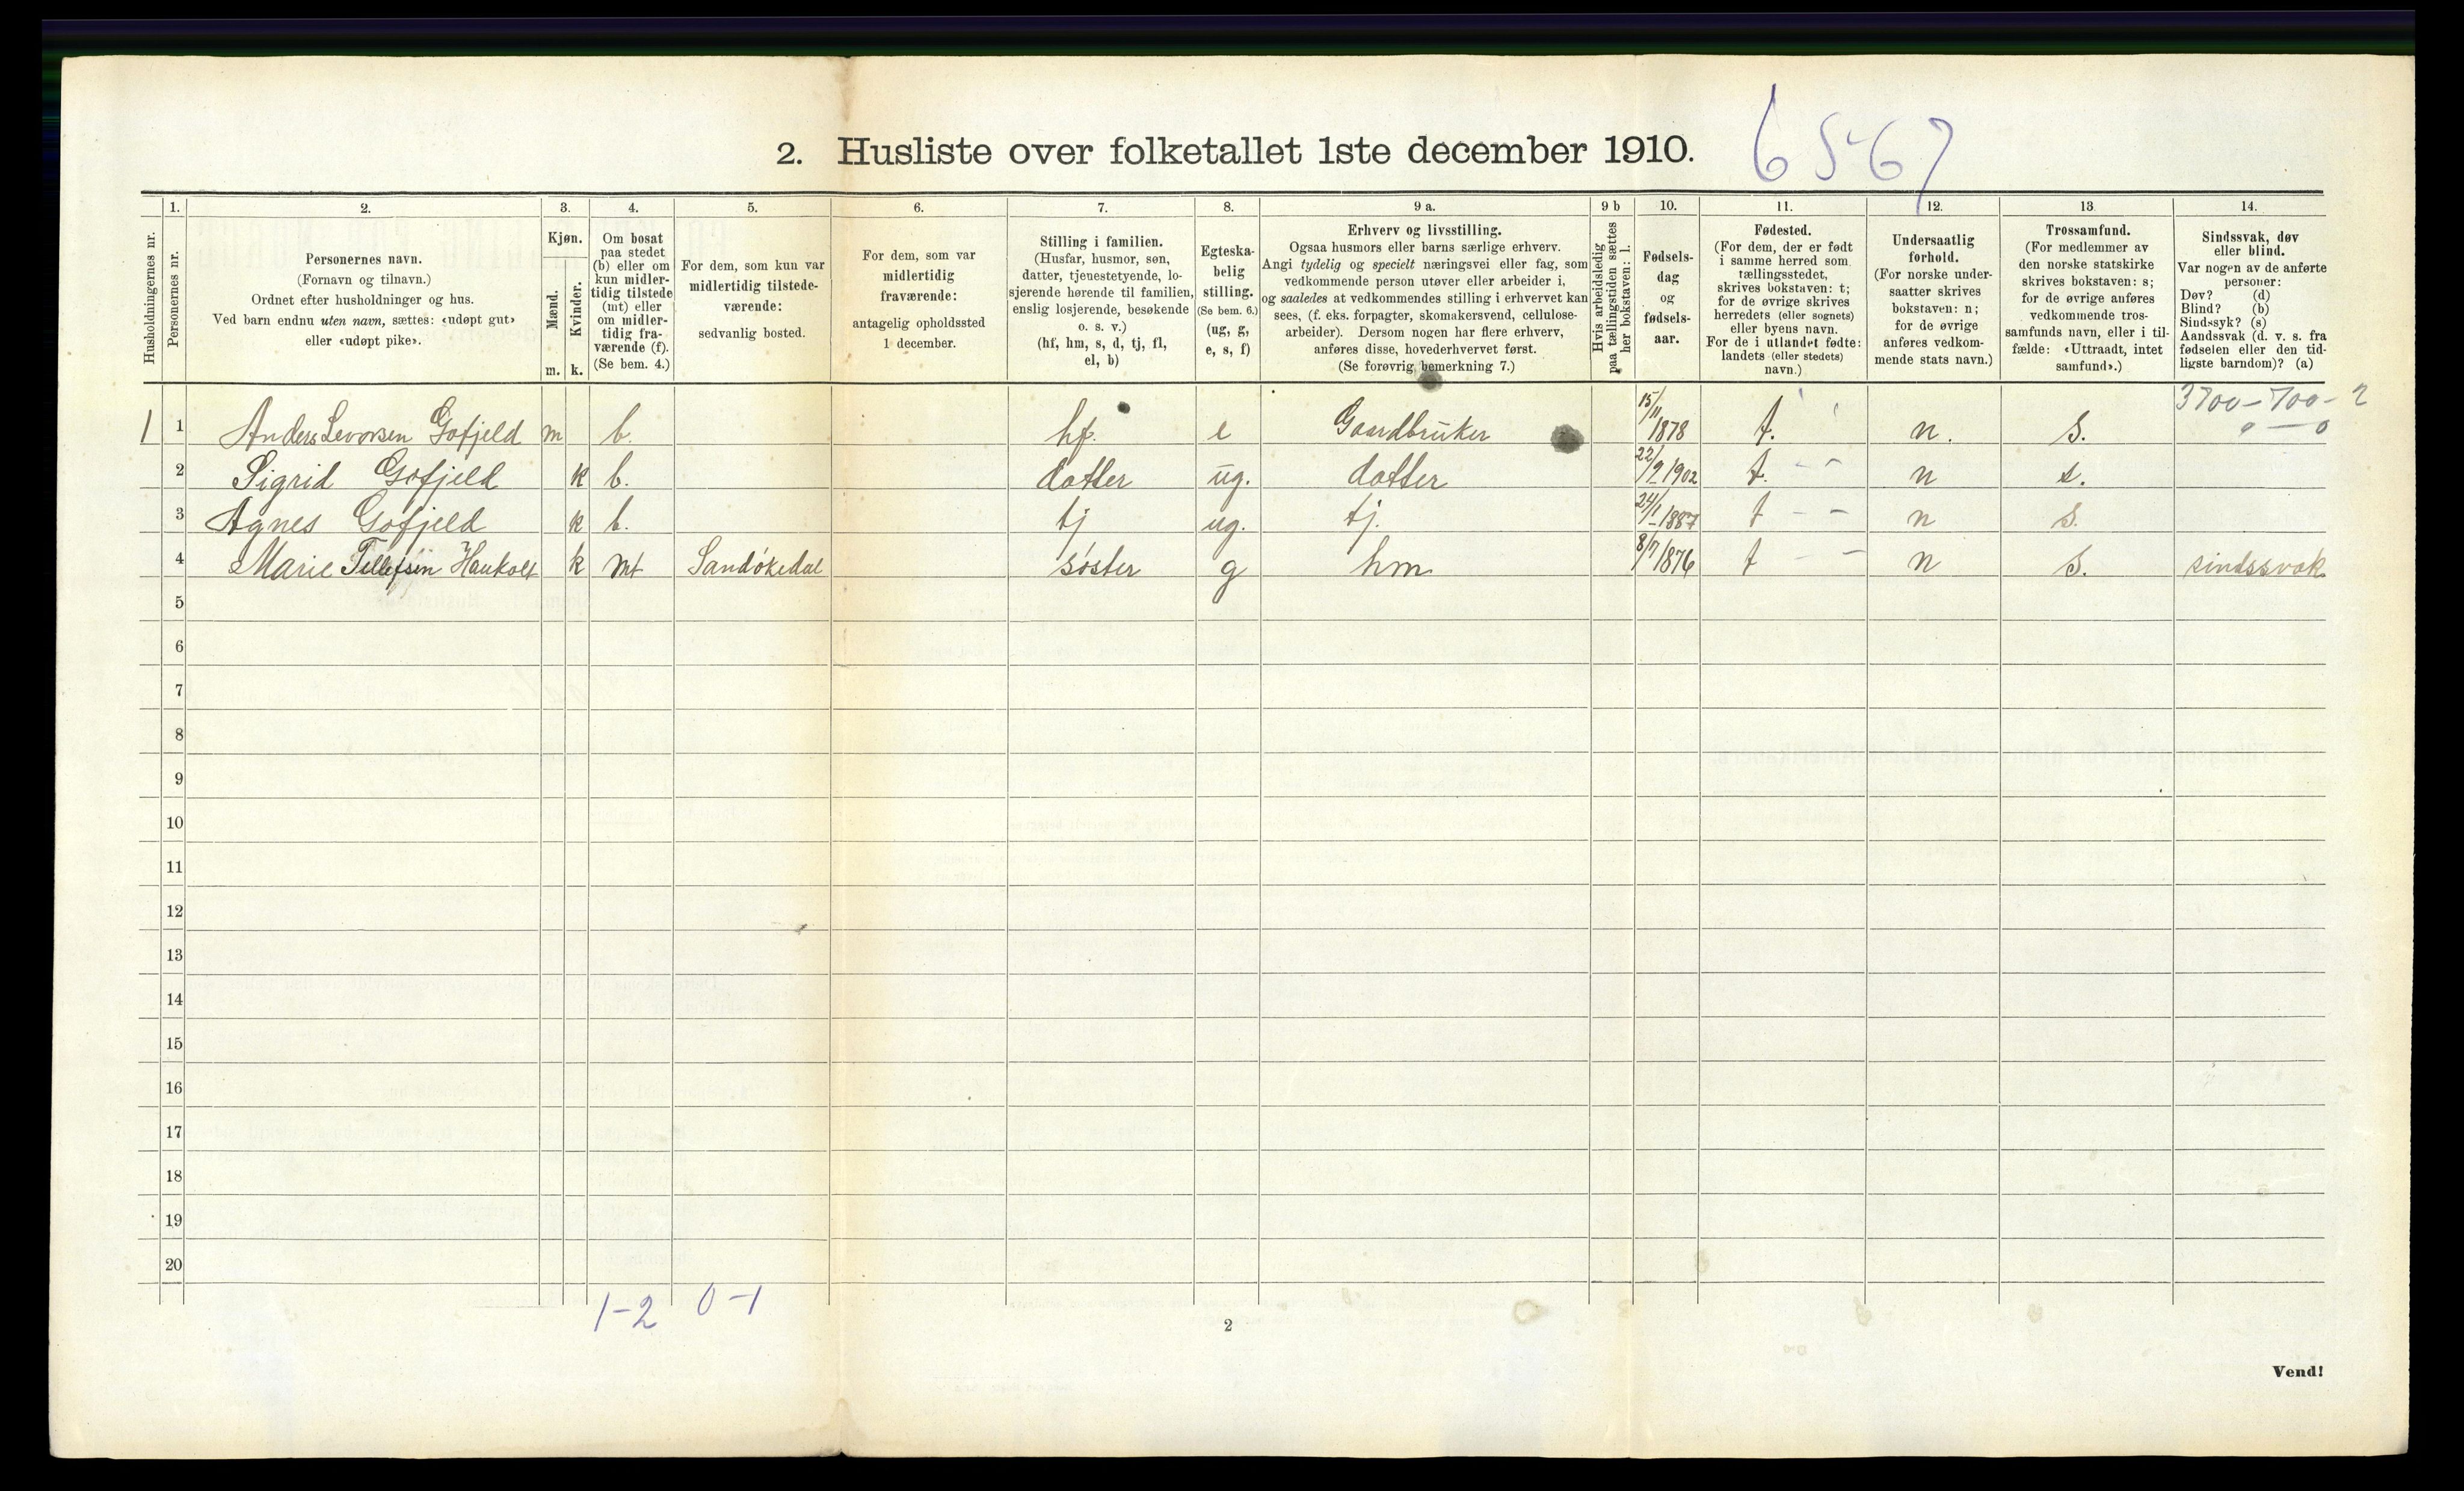 2. Husliste over folketallet 1ste december 1910.
65-67
1. 2. 3. 4. 5. 6. 7. 8. 9 a. 9 b 10. 11. 12. 13. 14.
Husholdningernes nr.
Personernes nr.
Personernes navn.
(Fornavn og tilnavn.)
Ordnet efter husholdninger og hus.
Ved barn endnu uten navn, sættes: «udøpt gut»
eller «udøpt pike».
Kjøn.
Mænd.
Kvinder.
m. k.
Om bosat
paa stedet
(b) eller om
kun midler-
tidig tilstede
(mt) eller
om midler-
tidig fra-
værende (f).
(Se bem. 4.)
For dem, som kun var
midlertidig tilstede-
værende:
sedvanlig bosted.
For dem, som var
midlertidig
fraværende:
antagelig opholdssted
1 december.
Stilling i familien.
(Husfar, husmor, søn,
datter, tjenestetyende, lo-
sjerende hørende til familien,
enslig losjerende, besøkende
o. s. v.)
(hf, hm, s, d, tj, fl,
el, b)
Egteska-
belig
stilling.
(Se bem. 6.)
(ug, g,
e, s, f)
Erhverv og livsstilling.
Ogsaa husmors eller barns særlige erhverv.
Angi tydelig og specielt næringsvei eller fag, som
vedkommende person utøver eller arbeider i,
og saaledes at vedkommendes stilling i erhvervet kan
sees, (f. eks. forpagter, skomakersvend, cellulose-
arbeider). Dersom nogen har flere erhverv,
anføres disse, hovederhvervet først.
(Se forøvrig bemerkning 7.)
Hvis arbeidsledig
paa tællingstiden sættes
her bokstaven: l.
Fødsels-
dag
og
fødsels-
aar.
Fødested.
(For dem, der er født
i samme herred som
tællingsstedet,
skrives bokstaven: t;
for de øvrige skrives
herredets (eller sognets)
eller byens navn.
For de i utlandet fødte:
landets (eller stedets)
navn.)
Undersaatlig
forhold.
(For norske under-
saatter skrives
bokstaven: n;
for de øvrige
anføres vedkom-
mende stats navn.)
Trossamfund.
(For medlemmer av
den norske statskirke
skrives bokstaven: s;
for de øvrige anføres
vedkommende tros-
samfunds navn, eller i til-
fælde: «Uttraadt, intet
samfund».)
Sindssvak, døv
eller blind.
Var nogen av de anførte
personer:
Døv? (d)
Blind? (b)
Sindssyk? (s)
Aandssvak (d. v. s. fra
fødselen eller den tid-
ligste barndom)? (a)
3700-700-2
0-0
1 1 Anders Levorsen Gofjeld m b. hf. e Gaardbruker 15/11 1878 t. n. s.
2 Sigrid Gofjeld k b. datter ug. datter 22/9 1902 t. - - n s.
3 Agnes Gofjeld k b. tj ug. tj. 24/1 1887 t - - n s.
4 Marie Tellefsen Haukolt k mt Sandökedal söster g hm 8/7 1876 t - - n s. sindssvak
5
6
7
8
9
10
11
12
13
14
15
16
17
18
19
20
1-2 0-1
2
Vend!